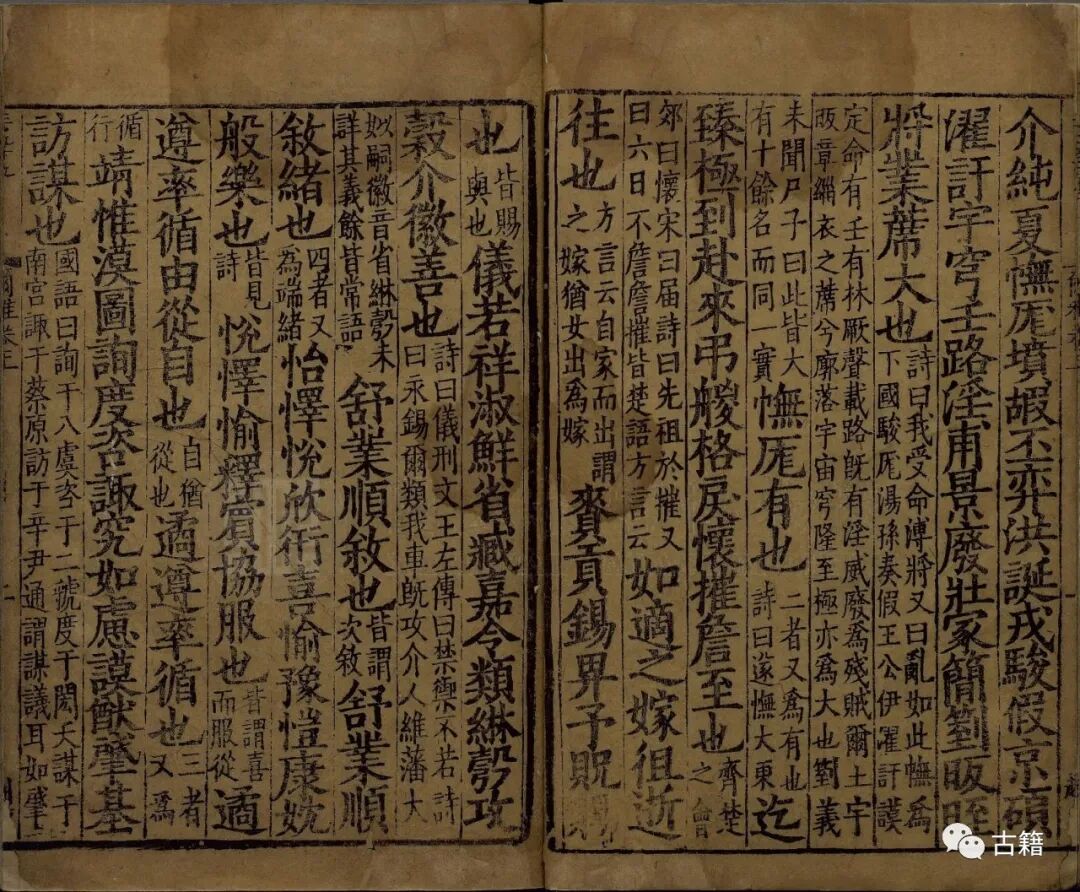 介純夏幠厖墳嘏丕弈洪誕戎駿假京碩
濯訏宇穹壬路淫甫景廢壯冢簡劉昄晊
將業蓆大也詩曰我受命溥將又曰亂如此幠為下國駿厖湯孫奏假王公伊濯訏謨
定命有壬有林厥聲載路旣有淫威廢爲殘賊爾土宇昄章緇衣之蓆兮廓落宇宙穹隆至極亦爲大也劉義
未聞尸子曰此皆大有十餘名而同一實幠厖有也二者又爲有也詩曰遂幠大東迄
臻極到赴來弔艐格戾懷摧詹至也齊楚之會
郊曰懷宋曰屆詩曰先祖於摧又曰六日不詹詹摧皆楚語方言云如適之嫁徂逝
往也方言云自家而出謂之嫁猶女出爲嫁賚貢錫畀予貺賜
也皆賜與也儀若祥淑鮮省臧嘉令類綝彀攻
穀介徽善也詩曰儀刑文王左傳曰禁禦不若詩曰永錫爾類我車旣攻介人維藩大
姒嗣徽音省綝彀未詳其義餘皆常語舒業順敘也皆謂次敘舒業順
敘緒也四者又為端緒怡懌悅欣衎喜愉豫愷康妉
般樂也皆見詩悅懌愉釋賓協服也皆謂喜而服從遹
遵率循由從自也自猶從也遹遵率循也三者又為
循行靖惟漠圖詢度咨諏究如慮謨猷肇基
訪謀也國語曰詢于八虞咨于二虢度于閎夭謀于南宮諏于蔡原訪于辛尹通謂謀議耳如肇
古籍